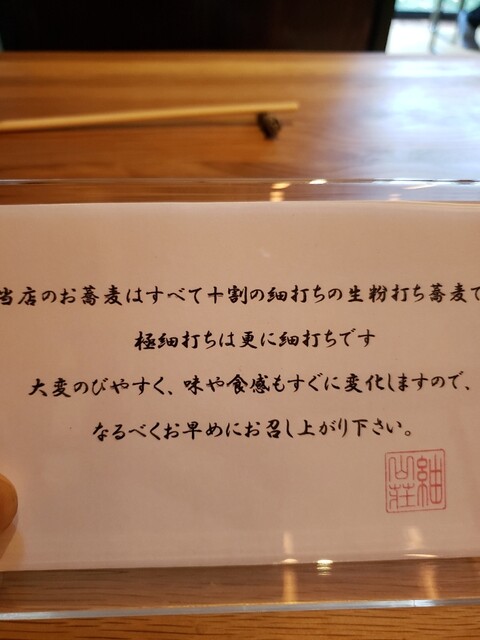 当店のお蕎麦はすべて十割の細打ちの生粉打ち蕎麦で
極細打ちは更に細打ちです
大変のびやすく、味や食感もすぐに変化しますので、
なるべくお早めにお召し上がり下さい。